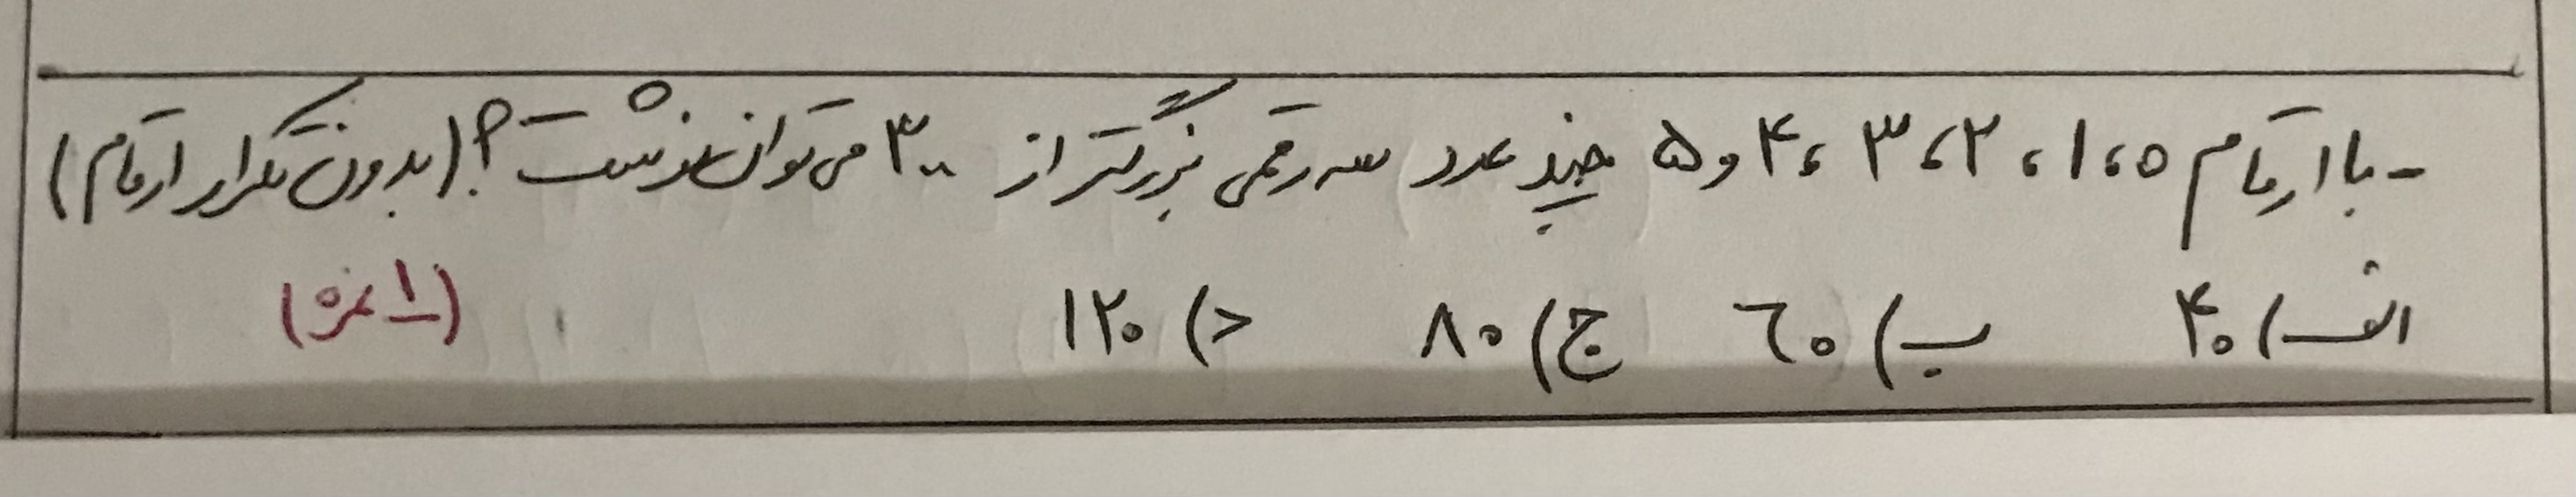 - با ارقام ۰، ۱، ۲، ۳، ۴ و ۵ چند عدد سه رقمی بزرگتر از ۳۰۰ می توان نوشت؟ (بدون تکرار ارقام)
الف) ۴۰ ب) ۶۰ ج) ۸۰ د) ۱۲۰ (۱ نمره)